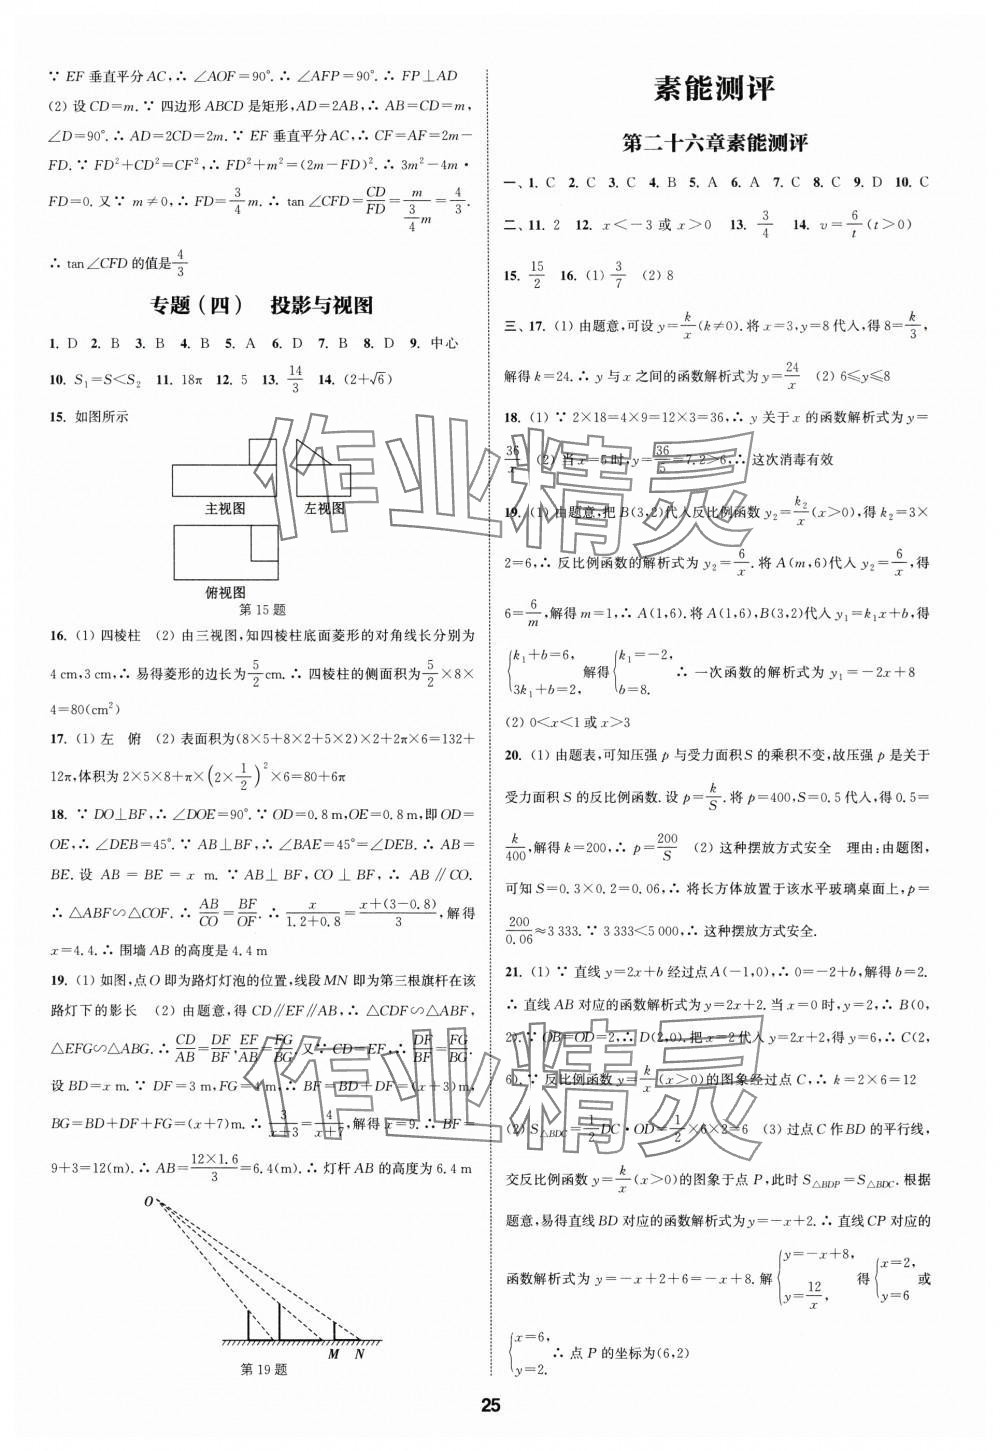 ∵ EF 垂直平分 AC,∴ ∠AOF=90°.∴ ∠AFP=90°.∴ FP⊥AD
(2) 设 CD=m.∵ 四边形 ABCD 是矩形,AD=2AB,∴ AB=CD=m,
∠D=90°.∴ AD=2CD=2m.∵ EF 垂直平分 AC,∴ CF=AF=2m-
FD.∵ FD²+CD²=CF²,∴ FD²+m²=(2m-FD)².∴ 3m²-4m·
FD=0.又∵ m≠0,∴ FD=3/4 m.∴ tan∠CFD=CD/FD=m/(3/4 m)=4/3.
∴ tan∠CFD 的值是 4/3
专题(四) 投影与视图
1. D 2. B 3. B 4. B 5. A 6. D 7. B 8. D 9. 中心
10. S₁=S<S₂ 11. 18π 12. 5 13. 14/3 14. (2+√6)
15. 如图所示
主视图 左视图
俯视图
第15题
16. (1) 四棱柱 (2) 由三视图,知四棱柱底面菱形的对角线长分别为
4 cm,3 cm,∴ 易得菱形的边长为 5/2 cm.∴ 四棱柱的侧面积为 5/2×8×
4=80(cm²)
17. (1) 左 俯 (2) 表面积为(8×5+8×2+5×2)×2+2π×6=132+
12π,体积为 2×5×8+π×(2×1/2)²×6=80+6π
18. ∵ DO⊥BF,∴ ∠DOE=90°.∵ OD=0.8 m,OE=0.8 m,即 OD=
OE,∴ ∠DEB=45°.∵ AB⊥BF,∴ ∠BAE=45°=∠DEB.∴ AB=
BE.设 AB=BE=x m.∵ AB⊥BF,CO⊥BF,∴ AB∥CO.
∴ △ABF∽△COF.∴ AB/CO=BF/OF.∴ x/(1.2+0.8)=(x+(3-0.8))/3,解得
x=4.4.∴ 围墙 AB 的高度是 4.4 m
19. (1) 如图,点 O 即为路灯灯泡的位置,线段 MN 即为第三根旗杆在该
路灯下的影长 (2) 由题意,得 CD∥EF∥AB,∴ △CDF∽△ABF,
△EFG∽△ABG.∴ CD/AB=DF/BF,EF/AB=FG/BG.又∵ CD=EF,∴ DF/BF=FG/BG.
设 BD=x m.∵ DF=3 m,FG=4 m,∴ BF=BD+DF=(x+3)m,
BG=BD+DF+FG=(x+7)m.∴ 3/(x+3)=4/(x+7),解得 x=9.∴ BF=
9+3=12(m).∴ AB=(12×1.6)/3=6.4(m).∴ 灯杆 AB 的高度为 6.4 m
O
M N
第19题
素能测评
第二十六章素能测评
一、1. C 2. C 3. C 4. B 5. A 6. A 7. C 8. C 9. D 10. C
二、11. 2 12. x<-3 或 x>0 13. 3/4 14. v=6/t(t>0)
15. 15/2 16. (1) 3/7 (2) 8
三、17. (1) 由题意,可设 y=k/x(k≠0).将 x=3,y=8 代入,得 8=k/3,
解得 k=24.∴ y 与 x 之间的函数解析式为 y=24/x (2) 6≤y≤8
18. (1) ∵ 2×18=4×9=12×3=36,∴ y 关于 x 的函数解析式为 y=
36/x (2) 当 x=5 时,y=36/5=7.2>6,∴ 这次消毒有效
19. (1) 由题意,把 B(3,2)代入反比例函数 y₂=k₂/x(x>0),得 k₂=3×
2=6,∴ 反比例函数的解析式为 y₂=6/x.将 A(m,6)代入 y₂=6/x,得
6=6/m,解得 m=1,∴ A(1,6).将 A(1,6),B(3,2)代入 y₁=k₁x+b,得
{k₁+b=6, 3k₁+b=2, 解得 {k₁=-2, b=8. ∴ 一次函数的解析式为 y₁=-2x+8
(2) 0<x<1 或 x>3
20. (1) 由题表,可知压强 p 与受力面积 S 的乘积不变,故压强 p 是关于
受力面积 S 的反比例函数.设 p=k/S.将 p=400,S=0.5 代入,得 0.5=
k/400,解得 k=200,∴ p=200/S (2) 这种摆放方式安全 理由:由题图,
可知 S=0.3×0.2=0.06,∴ 将长方体放置于该水平玻璃桌面上,p=
200/0.06≈3 333.∵ 3 333<5 000,∴ 这种摆放方式安全.
21. (1) ∵ 直线 y=2x+b 经过点 A(-1,0),∴ 0=-2+b,解得 b=2.
∴ 直线 AB 对应的函数解析式为 y=2x+2.当 x=0 时,y=2,∴ B(0,
2).∵ OB=OD=2,∴ D(2,0).把 x=2 代入 y=2x+2,得 y=6,∴ C(2,
6).∵ 反比例函数 y=k/x(x>0)的图象经过点 C,∴ k=2×6=12
(2) S△BDC=1/2 DC·OD=1/2×6×2=6 (3) 过点 C 作 BD 的平行线,
交反比例函数 y=k/x(x>0)的图象于点 P,此时 S△BDP=S△BDC.根据
题意,易得直线 BD 对应的函数解析式为 y=-x+2.∴ 直线 CP 对应的
函数解析式为 y=-x+2+6=-x+8.解 {y=-x+8, y=12/x, 得 {x=2, y=6 或
{x=6, y=2. ∴ 点 P 的坐标为(6,2)
25
作业精灵
作业精灵